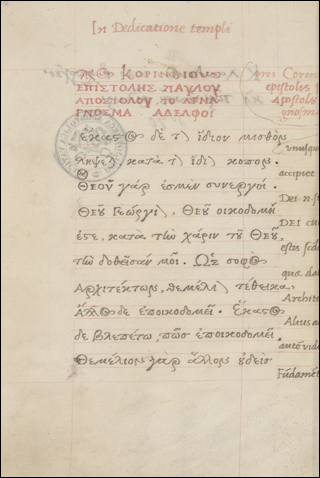 In Dedicatione templi
ΚΟΡΙΝΘΙΟΥΣ
ΕΠΙΣΤΟΛΗΣ ΠΑΥΛΟΥ
ΑΠΟΣΤΟΛΟΥ ΤΟ ΑΝΑ
ΓΝΟΣΜΑ ΑΔΕΛΦΟΙ
ἕκαστος δὲ τὸ ἴδιον μισθὸν
λήψεται κατὰ τὸ ἴδιον κόπον.
Θεοῦ γάρ ἐσμὲν συνεργοί.
Θεοῦ Γεώργιον, Θεοῦ οἰκοδομή
ἐστε, κατὰ τὴν χάριν τοῦ Θεοῦ,
τὴν δοθεῖσάν μοι. Ὡς σοφὸς
Ἀρχιτέκτων, θεμέλιον τέθεικα,
Ἄλλος δὲ ἐποικοδομεῖ. Ἕκαστος
δὲ βλεπέτω, πῶς ἐποικοδομεῖ.
Θεμέλιον γὰρ ἄλλον οὐδεὶς
Coron
epistolis
Apostolo
gnosma
Vnusqu
accipiec
Dei n. s
DEI cu
estis sed
qus. da
Archite
Alius a
autē vide
Fūdamēt